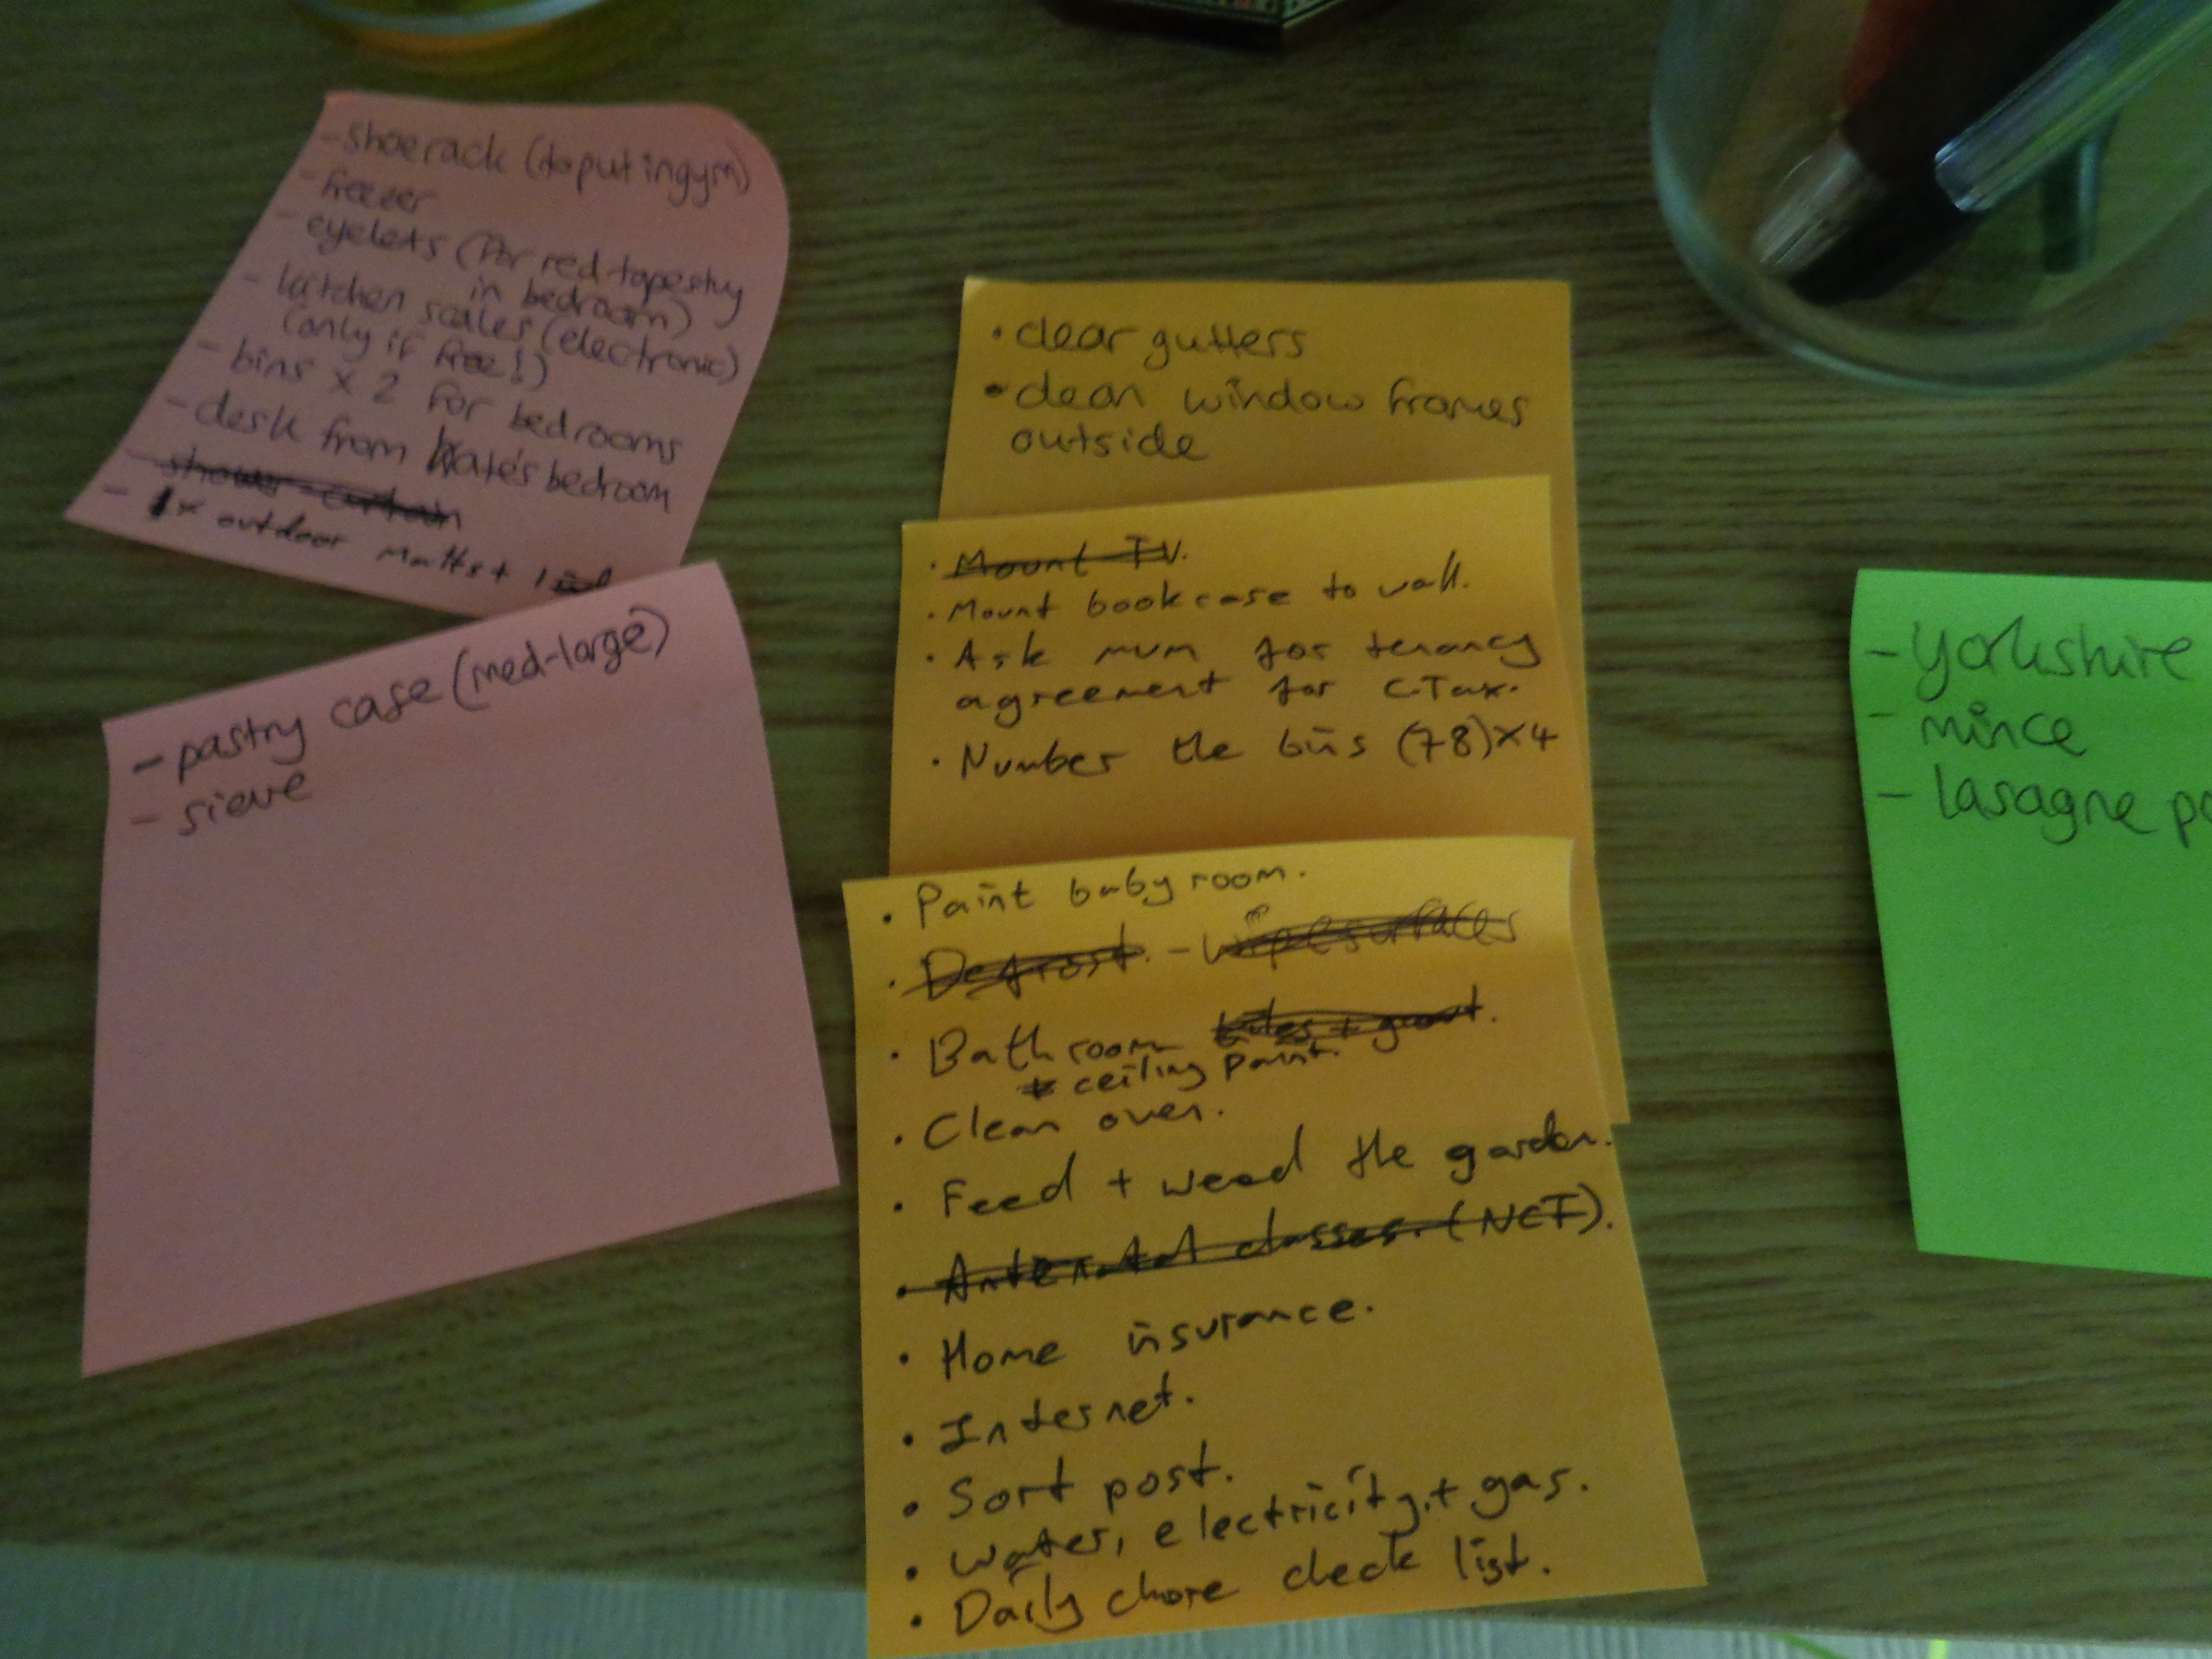 - shoe rack (to put in gym)
- freezer
- eyelets (for red tapestry
in bedroom)
- kitchen scales (electronic)
(only if free!)
- bins x 2 for bedrooms
- desk from Kate's bedroom
- shower curtain
- 1x outdoor matts + 1
- pastry case (med-large)
- sieve
• clear gutters
• clean window frames
outside
• Mount TV.
• Mount bookcase to wall.
• Ask mum for tenancy
agreement for C.Tax.
• Number the bins (78)x4
• Paint baby room.
• Defrost. - wipe surfaces
• Bathroom tiles + grout.
+ ceiling paint.
• Clean oven.
• Feed + weed the garden.
• Antenatal classes. (NCT).
• Home insurance.
• Internet.
• Sort post.
• Water, electricity, + gas.
• Daily chore check list.
- Yorkshire
- mince
- lasagne